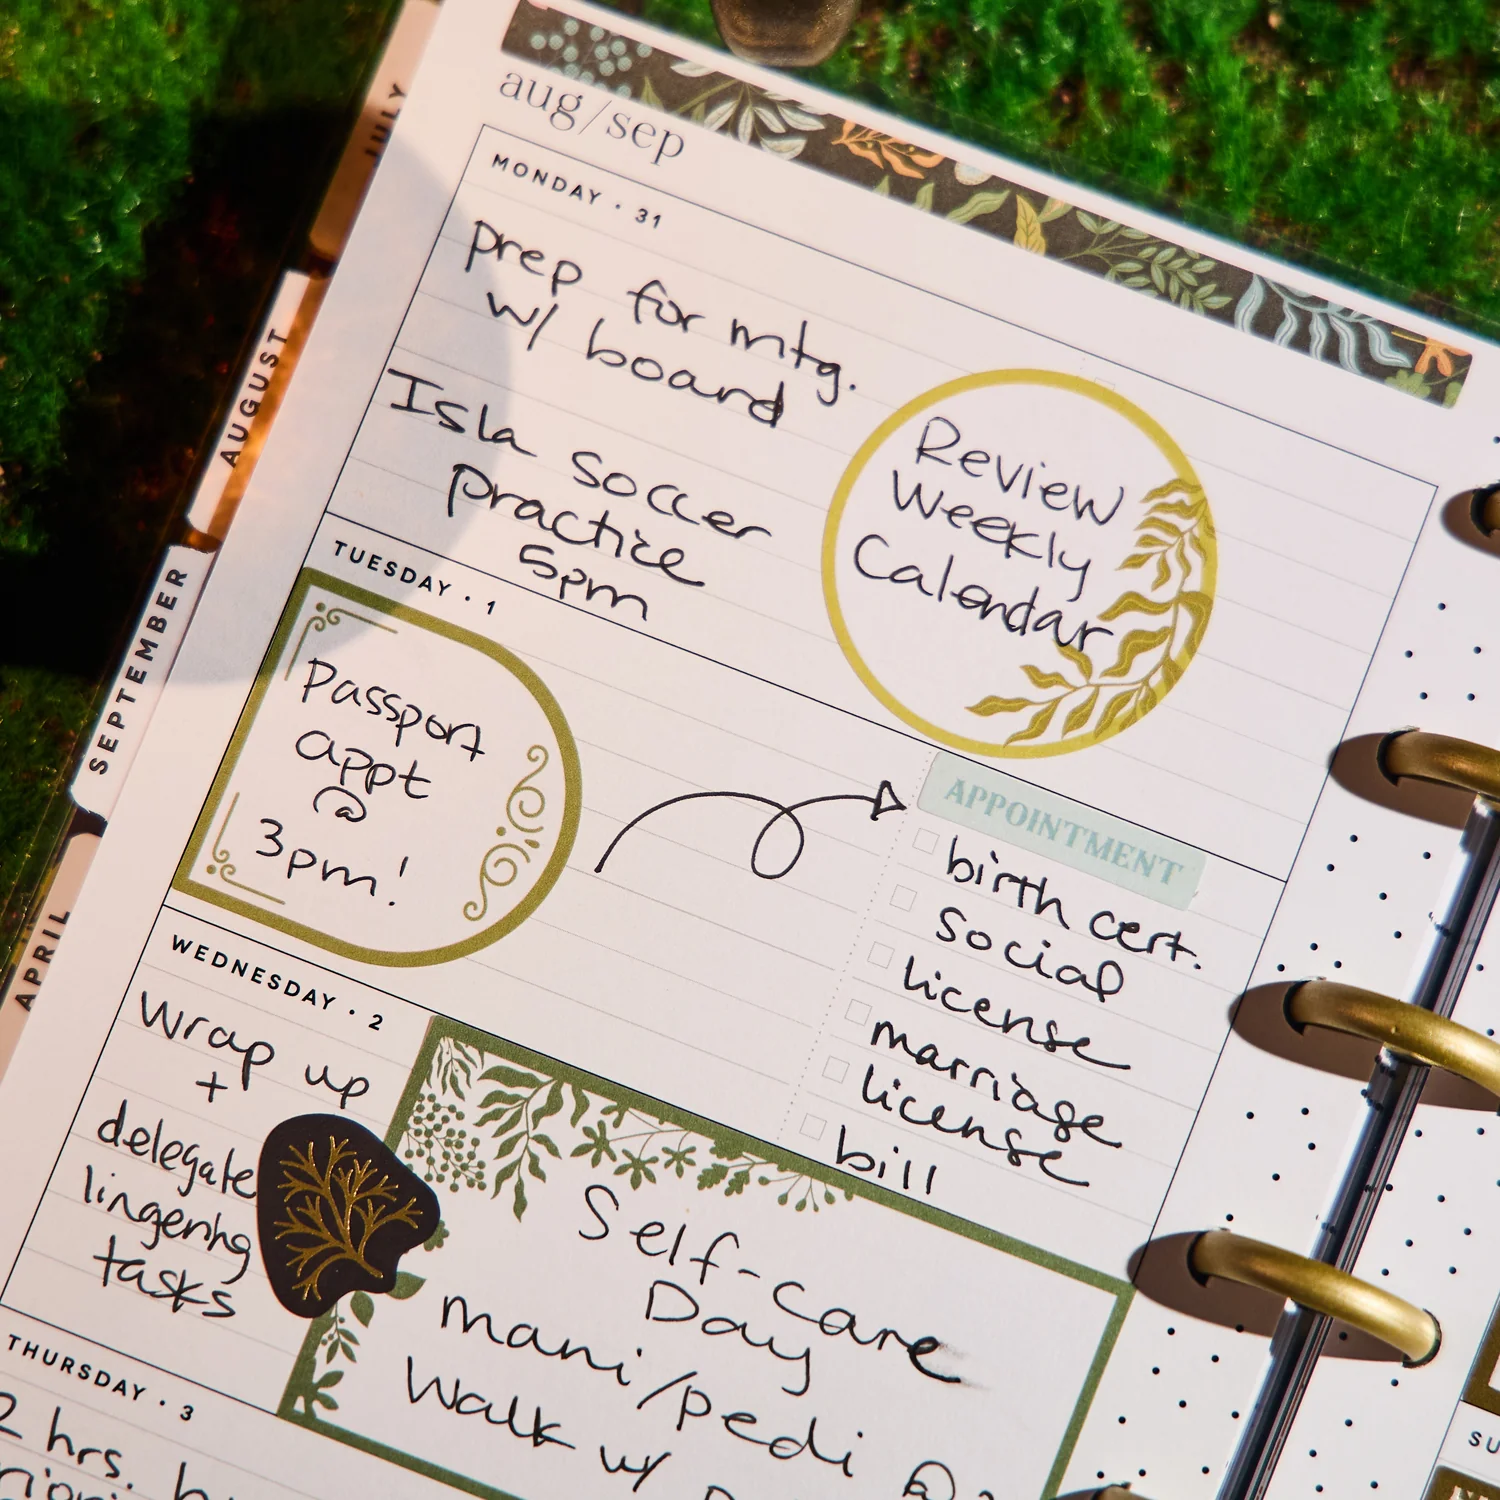 aug/sep
JULY
AUGUST
SEPTEMBER
APRIL
MONDAY · 31
prep for mtg.
w/ board
Isla soccer
practice
5pm
Review
Weekly
Calendar
TUESDAY · 1
Passport
appt
@
3pm!
APPOINTMENT
birth cert.
social
license
marriage
license
bill
WEDNESDAY · 2
wrap up
+
delegate
lingering
tasks
Self-care
Day
mani/pedi @
walk w/
THURSDAY · 3
2 hrs.
SU